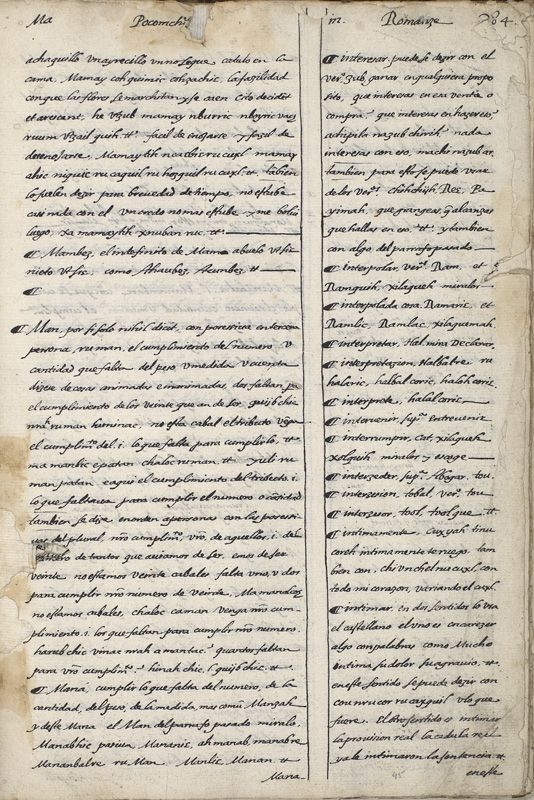 Ma Pocomchi
in. Romanze 704.
achaquillo vnayrecillo vnnoseque catalo en la
cama, Mamay cohquimic cohzachic, la fazilidad
conque las flores se marchitan, y se caen cito decidit
et arescunt, he vꝫub mamay nburric
quih. tt.a facil de enojarse y fazil de
desenojarse. Mamaytih ncacbic ru cuxl mamay
chic niquic ru caquil ru ru cuxl tt. tābien
lo suelen dezir para brevedad de tiempo, no estube
casi nada con el vn credo no mas estube, y me bolui
luego, xa mamaytih xnuban ruc. tt.a
¶ Mambez, el indefinito de Mama abuelo vt sic
nieto vt sic, como Ahaubez, Acunbez. tt
¶
¶ Man, por si solo nihil dicit, con poressiua en tercera
persona, ru man, el cumplimiento del numero v
cantidad que falta del peso, v medida, v cuenta
dizese de cosas animadas e inanimadas, dos faltan pa
el cumplimiento de los veinte que an de ser, quib chic
ruman huminac, no esta cabal el tributo vēga
el cumplimto del, i. lo que falta para cumplirlo, tt
ma manlic e patan chaloc ru man. tt yuli ru
man patan eaqui el cumplimiento del tributo. i.
lo que faltaua para cumplir el numero o cātidad
tambien se dize en orden a personas con las poressi-
uas del plural, nro cumplimto, vro, de aquellos, i. del
numero de tantos que auiamos de ser, emos de ser
veinte no estamos veinte cabales falta vno, v dos
para cumplir nro numero de veinte, Ma manalcos
no estamos cabales, chaloc caman venga nro cum-
plimiento. i. los que faltan para cumplir nro numero.
harub chic vinac nrah a mantac. quantos faltan
para vro cumplimto. hinah chic, l. quib chic. tt
¶ Mana, cumplir lo que falta del numero, de la
cantidad, del peso, de la medida, mas comū Manzah
y deste Mana el Man del parrafo pasado miralo.
Manabhic pasiua, Mananic, ah manab, manabre
Mananbalre ru Man. Manlic Manan. tt
Mana.
¶ interesar, puedese dezir con el
ver.o ꝫub, ganar en qualquiera propo
sito, que interesas en esa venta o
compra. que interesas en hazer eso,
ahipila naꝫub chirih. nada
interesas con eso, machi naꝫub ar.
tambien para esto se puede vsar
de los ver.os chihchih, Rec. Pa
yimah, que grangeas, q alcanzas
que hallas en eso tt. y tambien
con algo del parrafo pasado
¶ interpolar, ver.o Ram, et
Ramquih, xilaquih miralos
¶ interpolada cosa, Ramaric, et
Ramlic, Ramlac, xilaquimah.
¶ interpretar, Hal, mira Declarar,
¶ interpretazion, Halbalre ru
halaric, halbal coric, halah coric
¶ interprete, halal coric
¶ interuenir, sup.a Entreuenir
¶ interrumpir, Cat, xilaquih
xolquih miralos y esage
¶ interzeder, sup.a Abogar, tou.
¶ interzesion, tobal, ver.o tou
¶ interzesor, tool, tool que. tt.
¶ intimamente, Cuxyah tinu
coreh intimamente te ruego, tam
bien con, chi vnchel nu cuxl, con
todo mi corazon, variando el cuxl.
¶ intimar, en dos sentidos lo vsa
el castellano el vno es encarezer
algo con palabras como Mucho
intima su dolor su agrauio, tt.
en este sentido se puede dezir con
cou nru cor ru caxquil v lo que
fuere. El otro sentido es intimar
la prouision real la cedula real
ya le intimaron la sentencia. tt
en este